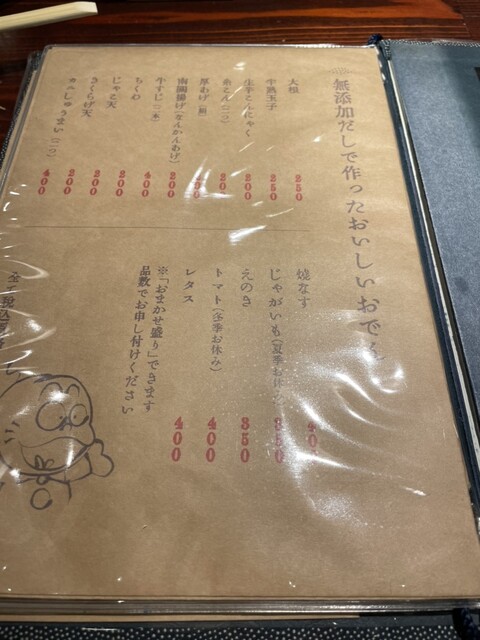 無添加だしで作ったおいしいおでん
大根 250
半熟玉子 250
生芋こんにゃく 200
糸こん(二つ) 200
厚あげ(絹) 200
南関揚げ(なんかんあげ) 200
牛すじ(一本) 400
ちくわ 200
じゃこ天 200
きくらげ天 200
カニしゅうまい(二つ) 400
焼なす 400
じゃがいも(夏季お休み) 350
えのき 350
トマト(冬季お休み) 400
レタス 400
※「おまかせ盛り」できます
品数でお申し付けください